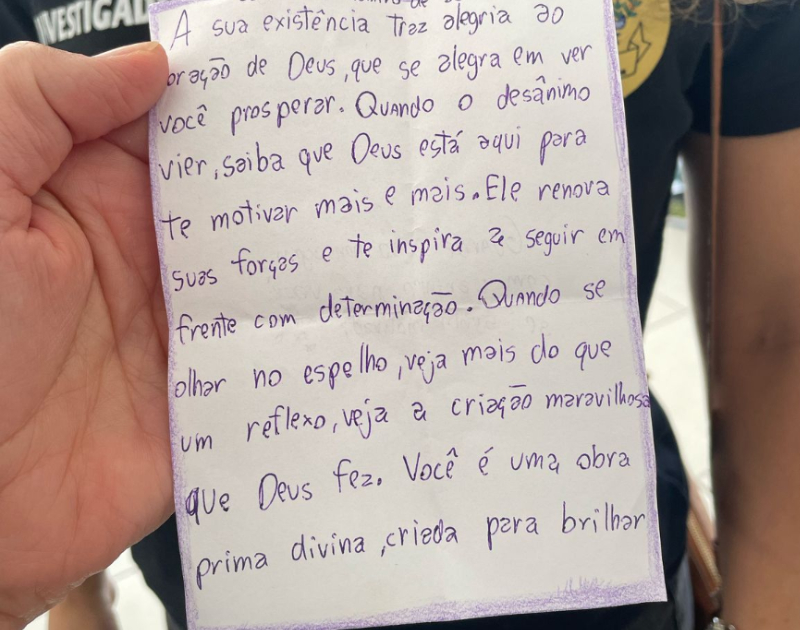 INVESTIGAD
A sua existência traz alegria ao
oração de Deus, que se alegra em ver
você prosperar. Quando o desânimo
vier, saiba que Deus está aqui para
te motivar mais e mais. Ele renova
suas forças e te inspira a seguir em
frente com determinação. Quando se
olhar no espelho, veja mais do que
um reflexo, veja a criação maravilhosa
que Deus fez. Você é uma obra
prima divina, criada para brilhar